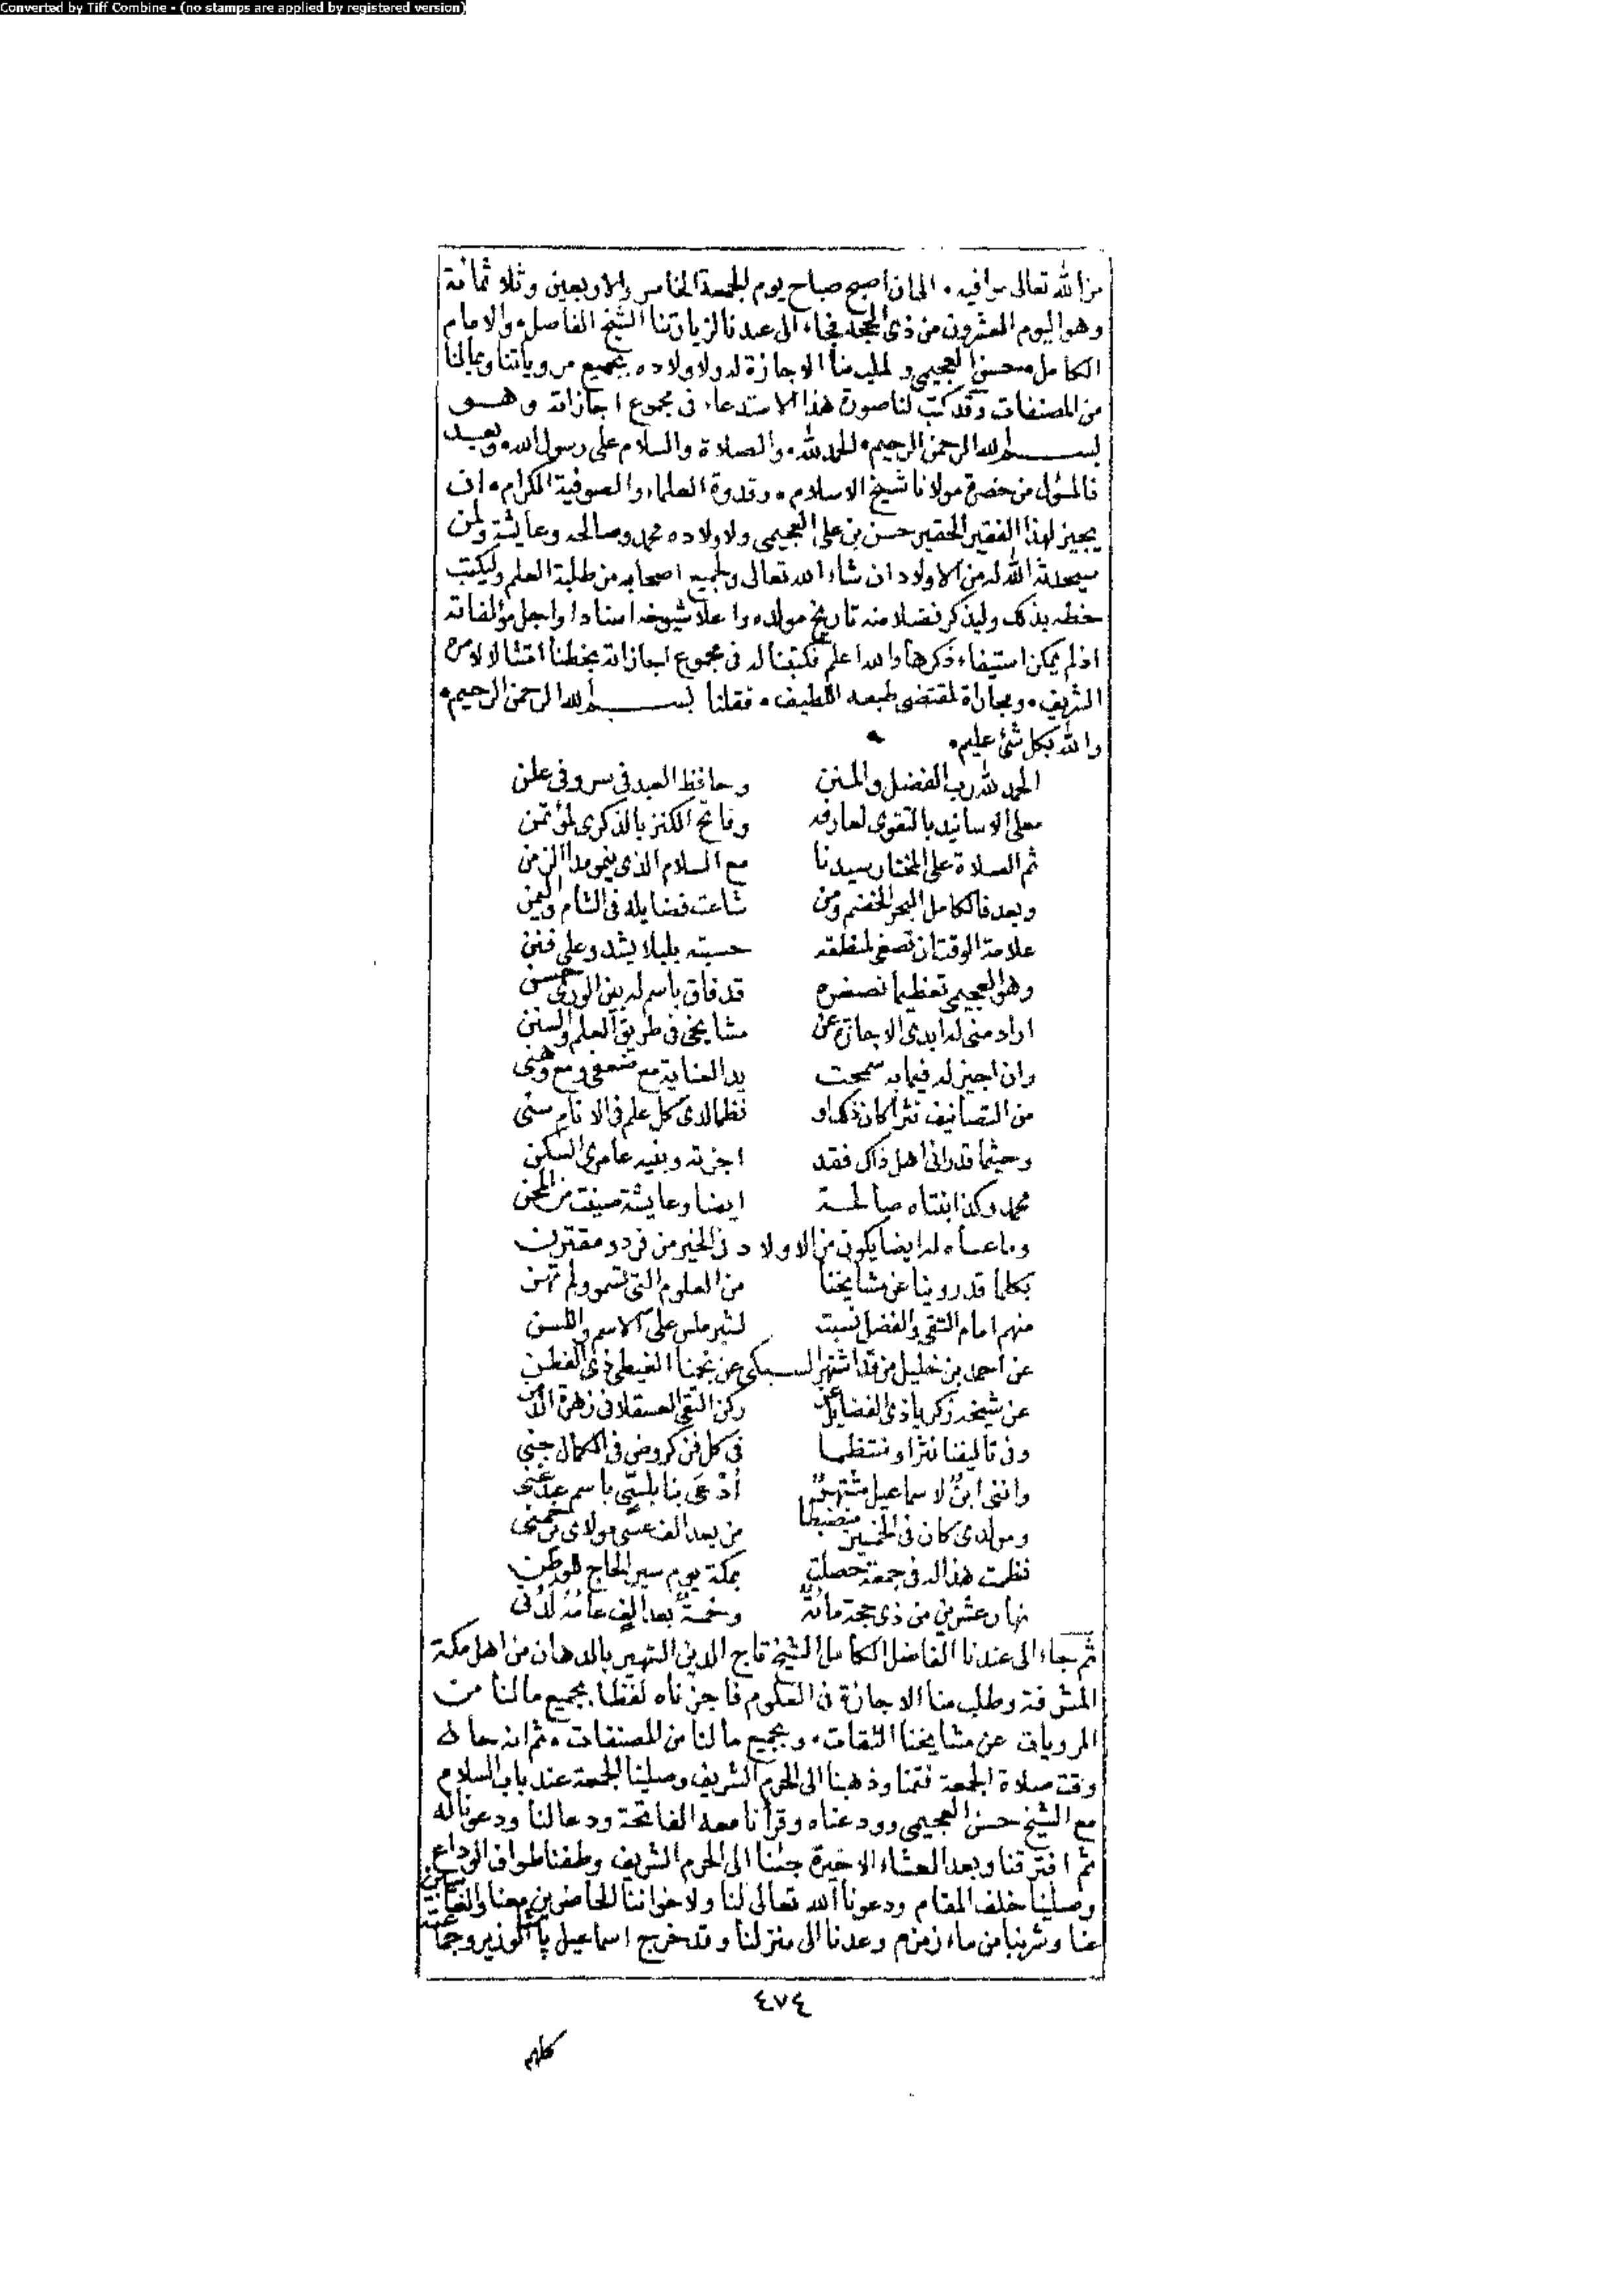 Converted by Tiff Combine - (no stamps are applied by registered version)
من الله تعالى موافيه . الى ان اصبح صباح يوم الجمعة الخامس والاربعين وثلاثمائة
وهو اليوم العشرون من ذى الحجة فجاء الى عندنا لزيارتنا الشيخ الفاضل . والامام
الكامل . حسن العجيمى وطلب منا الاجازة له ولاولاده بجميع مروياتنا وبمالنا
من المصنفات وقد كتب لنا صورة هذا الاستدعاء فى مجموع اجازاته وهو
بسم الله الرحمن الرحيم . الحمد لله . والصلاة والسلام على رسول الله . وبعد
فالمسؤل من حضرة مولانا شيخ الاسلام . وقدوة العلماء والصوفية الكرام . ان
يجيز لهذا الفقير الحقير حسن بن على العجيمى ولاولاده محمد وصالحه وعايشة ولمن
سيحدثه الله له من الاولاد ان شاء الله تعالى ولجميع اصحابه من طلبة العلم وليكتب
خطه بذلك وليذكر فضلا منه تاريخ مولده واعلا شيوخه اسنادا واجل مؤلفاته
اذ لم يمكن استيفاء ذكرها والله اعلم فكتبنا له فى مجموع اجازاته بخطنا امتثالا لامره
الشريف . ومجاراة لمقتضى طبعه اللطيف . فقلنا بسم الله الرحمن الرحيم .
والله بكل شئ عليم .
الحمد لله رب الفضل والمنن وحافظ العبد فى سر وفى علن
معلى الاسانيد بالتقوى لعارفه وفاتح الكنز بالذكرى لمؤتمن
ثم الصلاة على المختار سيدنا مع السلام الذى ينمو مدا الزمن
وبعد فالكامل البحر الخضم ومن شاعت فضايله فى الشام واليمن
علامة الوقت ان تصغى لمنطقه حسبته بلبلا يشدو على فنن
وهو العجيمى تعظيما نصغره قد فاق باسم له بين الورى حسن
اراد منى له ابدى الاجازة عن مشايخى فى طريق العلم والسنن
وان اجيز له فيما به سمحت يد العناية مع ضعفى ومع وهنى
من التصانيف نثرا كان ذلك او نظما لدى كل علم فى الانام سنى
وحيثما قد رانى اهل ذاك فقد اجزته وبنيه عامرى السكن
محمد وكذا ابنتاه صالحة ايضا وعايشة صينت من المحن
وما عساه له ايضا يكون من الاولاد فى الخير من فرد ومقترن
بكلما قد روينا عن مشايخنا من العلوم التى تسمو ولم تهن
منهم امام التقى والفضل نسبت لشبرملس على الاسم واللسن
عن احمد بن خليل من قد اشتهر السبكى عن نجمنا الغيطى ذى الفطن
عن شيخه زكريا ذى الفضايل عن ركن التقى العسقلانى زهرة
وفى تاليفنا نثرا ومنتظما فى كل فن كروض فى الكمال جنى
واننى ابن لاسماعيل مشتهر أدعى بنابلسى باسم عبد غنى
ومولدى كان فى الخمسين منضبطا من بعد الف عسى مولاى يرحمنى
نظمت هذا له فى جمعة حصلت بمكة يوم سير الحاج للوطن
نهار عشرين من ذى حجة مائة وخمسة بعد الف عامه
ثم جاء الى عندنا الفاضل الكامل الشيخ تاج الدين الشهير بالدهان من اهل مكة
المشرفة وطلب منا الاجازة فى العلوم فاجزناه لفظا بجميع مالنا من
المرويات عن مشايخنا الثقات . وبجميع ما لنا من المصنفات . ثم انه حان
وقت صلاة الجمعة فقمنا وذهبنا الى الحرم الشريف وصلينا الجمعة عند باب السلام
مع الشيخ حسن العجيمى وودعناه وقرأنا معه الفاتحة ودعا لنا ودعونا له
ثم افترقنا وبعد العشاء الاخيرة جئنا الى الحرم الشريف وطفنا طواف الوداع
وصلينا خلف المقام ودعونا الله تعالى لنا ولاخواننا الحاضرين معنا والغائبين
عنا وشربنا من ماء زمزم وعدنا الى منزلنا وقد خرج اسماعيل باشا الوزير وجماعته
٤٧٤
كلهم